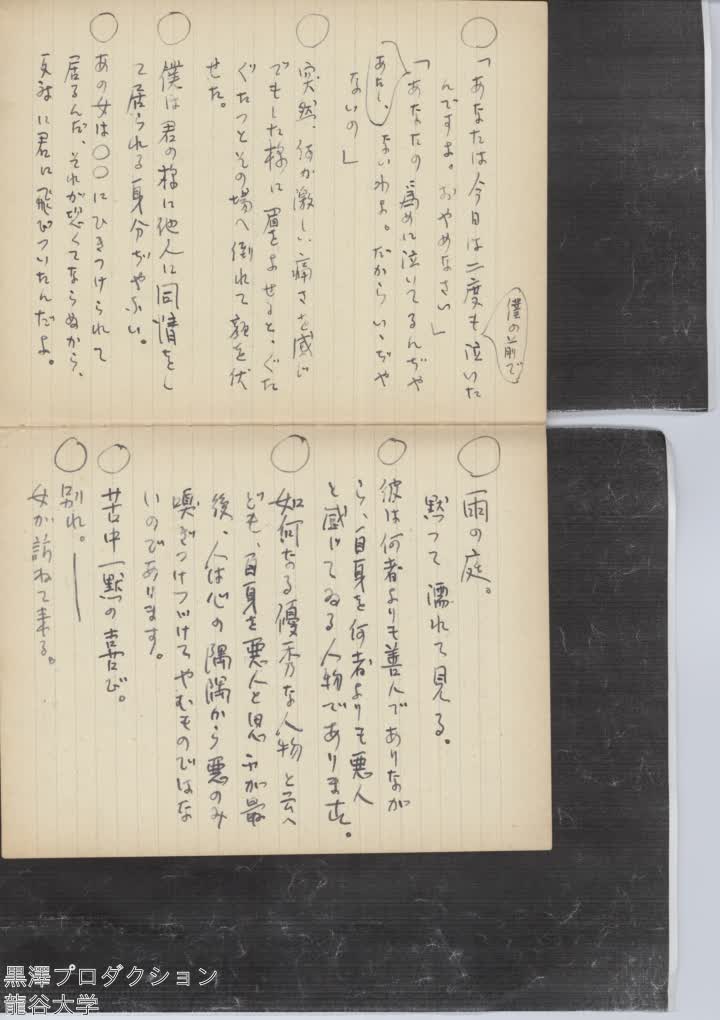 ○「あなたは今日は二度も泣いた
僕の前で
んですよ。おやめなさい」
「あなたの為めに泣いてるんぢや
あたし、
ないわよ。だからいゝぢや
ないの」
○突然、何か激しい痛さを感じ
でもした様に眉をよせると、ぐた
ぐたつとその場へ倒れて顔を伏
せた。
○僕は君の様に他人に同情をし
て居られる身分ぢやない。
○あの女は○○にひきつけられて
居るんだ、それが恐くてならぬから、
反対に君に飛びついたんだよ。
○雨の庭。
黙つて濡れて見る。
○彼は何者よりも善人でありなが
ら、自身を何者よりも悪人
と感じてゐる人物であります。
○如何なる優秀な人物と云へ
ども、自身を悪人と思ふが最
後、人は心の隅隅から悪のみ
嗅ぎつけつゞけてやむものではな
いのであります。
○苦中一點の喜び。
○別れ。――
女が訪ねて来る。
黒澤プロダクション
龍谷大学